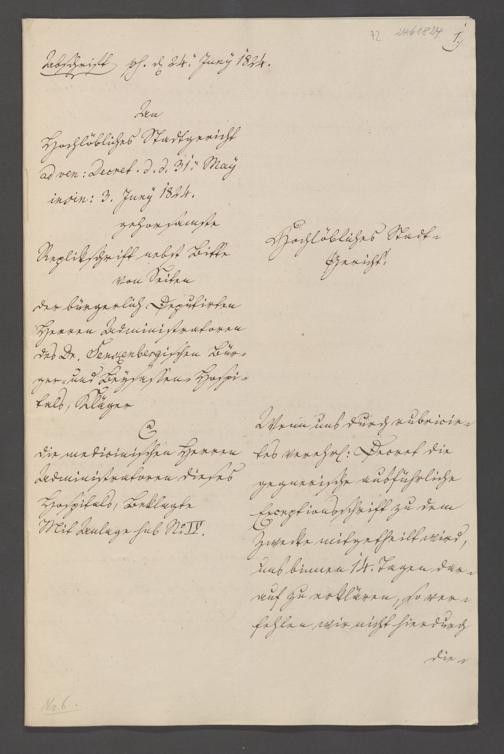 72 2461824
1
Abschrift ph. d. 24. Juny 1824.
An
Hochlöbliches Stadtgericht
ad ven: Decret. d. d. 31n May
insin: 3. Juny 1824.
gehorsamste
Replikschrift nebst Bitte
von Seiten
der bürgerlich. Deputirten
Herren Administratoren
des Dr. Senckenbergischen Bür-
ger- und Beysassen-Hospi-
tals, Kläger
C
die medicinischen Herren
Administratoren dieses
Hospitals, Beklagte
Mit Anlage sub No IV.
Hochlöbliches Stadt-
Gericht!
Wenn uns durch rubricir-
tes verehrl: Decret die
gegnerische ausführliche
Exceptionsschrift zu dem
Zwecke mitgetheilt wird,
uns binnen 14. Tagen dar-
auf zu erklären, so ver-
fehlen wir nicht hierdurch
die-
No. 6.